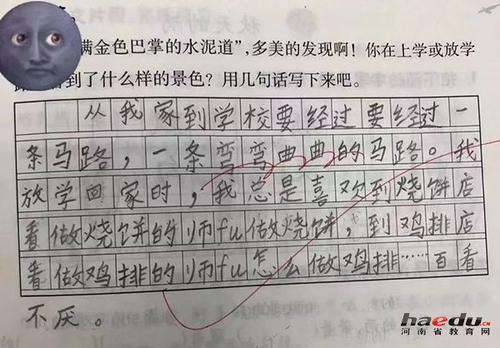 满金色巴掌的水泥道”，多美的发现啊！你在上学或放学
到了什么样的景色？用几句话写下来吧。
从我家到学校要经过要经过一
条马路，一条弯弯曲曲的马路。我
放学回家时，我总是喜欢到烧饼店
看做烧饼的师fu做烧饼，到鸡排店
看做鸡排的师fu怎么做鸡排……百看
不厌。
haedu.cn
河南省教育网